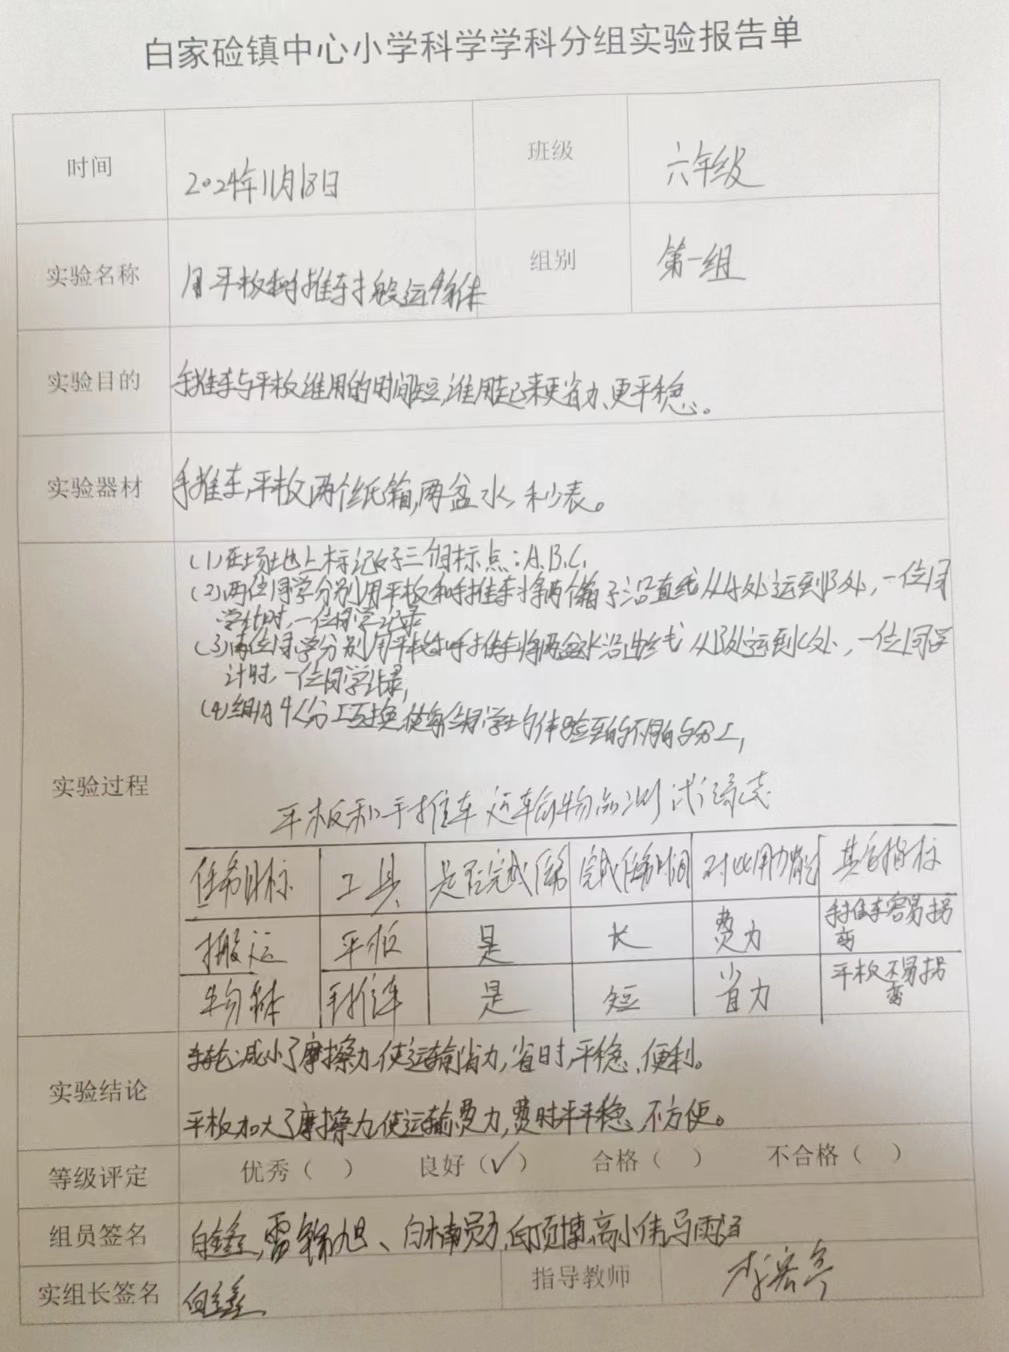 白家硷镇中心小学科学学科分组实验报告单
时间 2024年11月18日 班级 六年级
实验名称 用平板和手推车搬运物体 组别 第一组
实验目的 手推车与平板谁用的时间短,谁用起来更省力、更平稳。
实验器材 手推车,平板,两个纸箱,两盆水,秒表。
实验过程
(1)在场地上标记好三个目标点:A.B.C,
(2)两位同学分别用平板和手推车将两个箱子沿直线从A处运到B处,一位同
学计时,一位同学记录
(3)两位同学分别用平板和手推车将两盆水沿曲线从B处运到C处,一位同学
计时,一位同学记录,
(4)组内4人分工互换,使每个同学均体验到的不同的分工,
平板和手推车运输物品测试记录表
任务目标 工具 是否完成任务 完成任务时间 对比用力情况 其它指标
搬运 平板 是 长 费力 手推车容易拐
弯
物体 手推车 是 短 省力 平板不易拐
弯
实验结论
车轮减小了摩擦力,使运输省力,省时,平稳、便利。
平板加大了摩擦力,使运输费力,费时,不平稳、不方便。
等级评定 优秀( ) 良好(✓) 合格( ) 不合格( )
组员签名 高小伟
实组长签名 指导教师 李宏亭